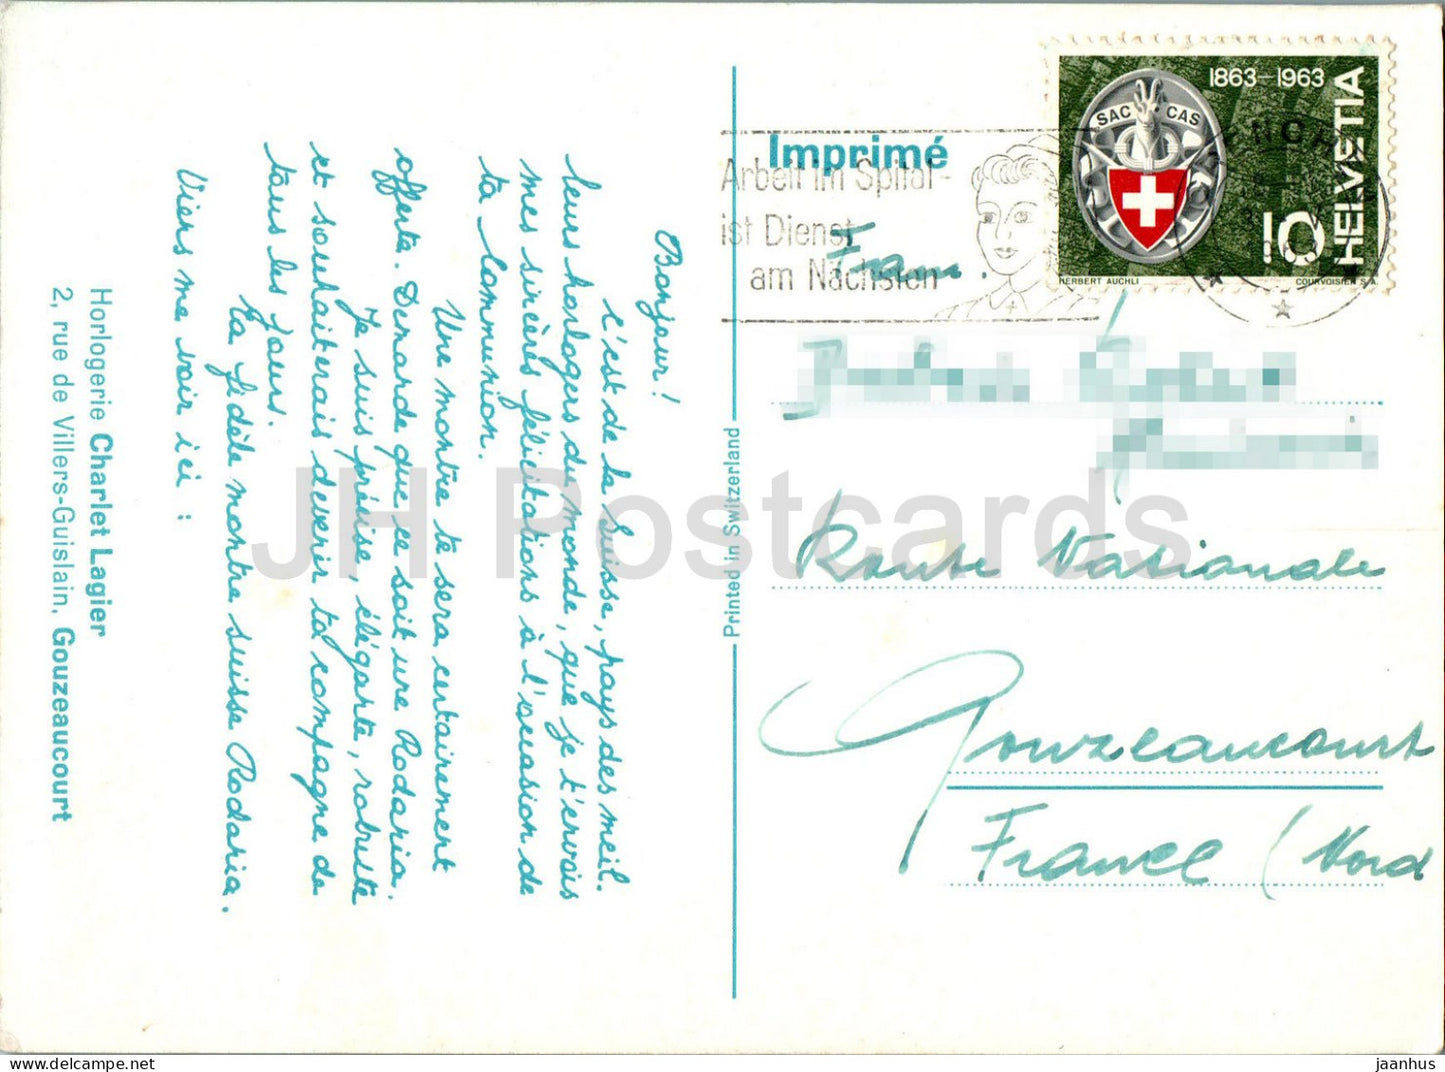 Bonjour!
C'est de la Suisse, pays des meil.
leurs horlogers du monde, que je t'envois
mes sincères félicitations à l'occasion de
ta Communion.
Une montre te sera certainement
offerte. Demande que ce soit une Rodania.
Je suis précise, élégante, robuste
et souhaiterais devenir ta compagne de
tous les jours.
Ta fidèle montre suisse Rodania.
Viens me voir ici :
Horlogerie Charlet Lagier
2, rue de Villers-Guislain, Gouzeaucourt
Printed in Switzerland
Imprimé
Arbeit im Spital -
ist Dienst
am Nächsten
1863-1963
SAC CAS
HELVETIA
10
HERBERT AUCHLI
COURVOISIER S.A.
Route Nationale
Gouzeaucourt
France (Nord
JH Postcards
jaanhus